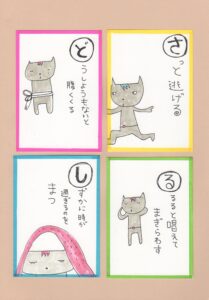 ど
うしようもないと
腹くくる
さ
っと逃げる
し
ずかに時が
過ぎるのを
まつ
る
るると唱えて
まぎらわす